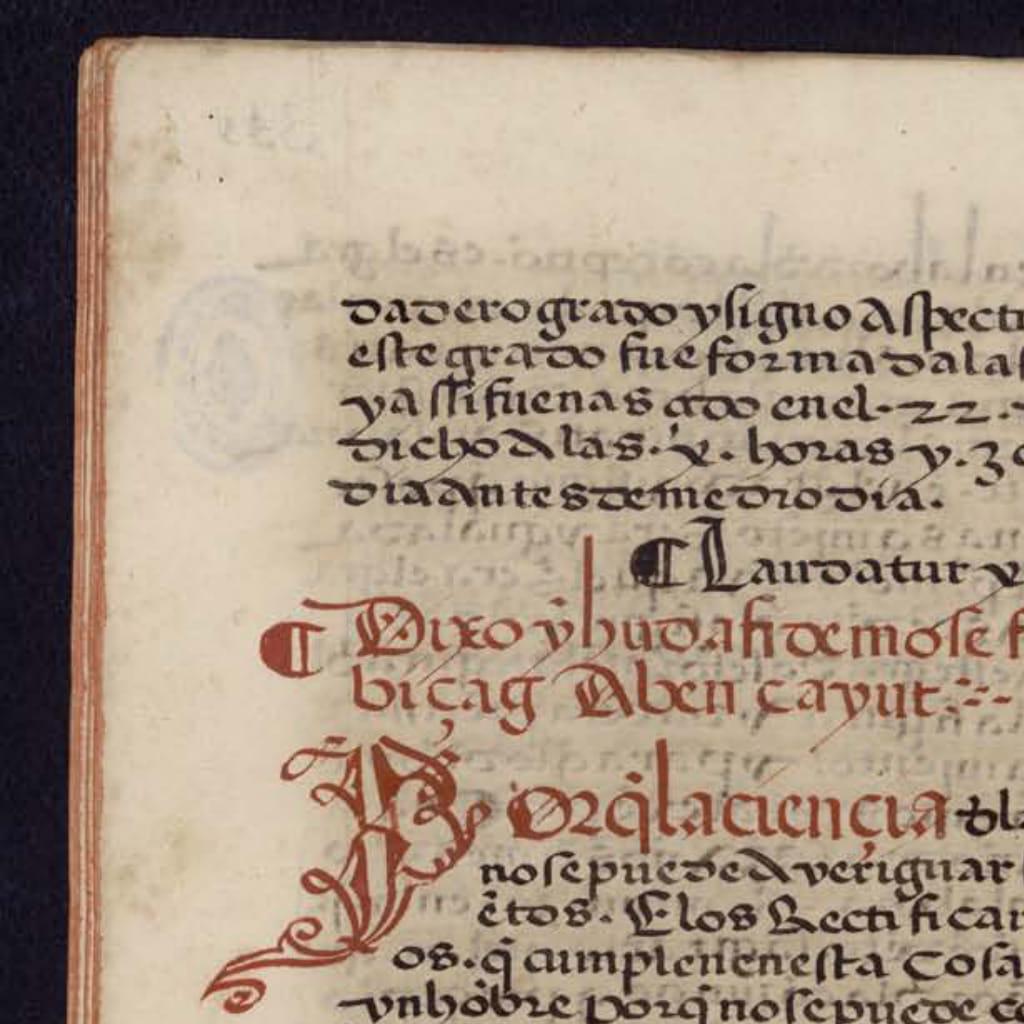 dadero grado y signo Aspecti
este grado fue formada la f
y assi fue nasçido en el .22.
dicho A las .x. horas y .30
dia Antes de medio dia.
¶ Laudatur x
¶ Dixo yhuda fi de mose f
bi çag Aben cayut
Porq̃ la ciençia dla
no se puede Averiguar
ẽtos. E los Rectificar
os. q̃ cumplen en esta Cosa
vn hõbre porq̃ no se puede co